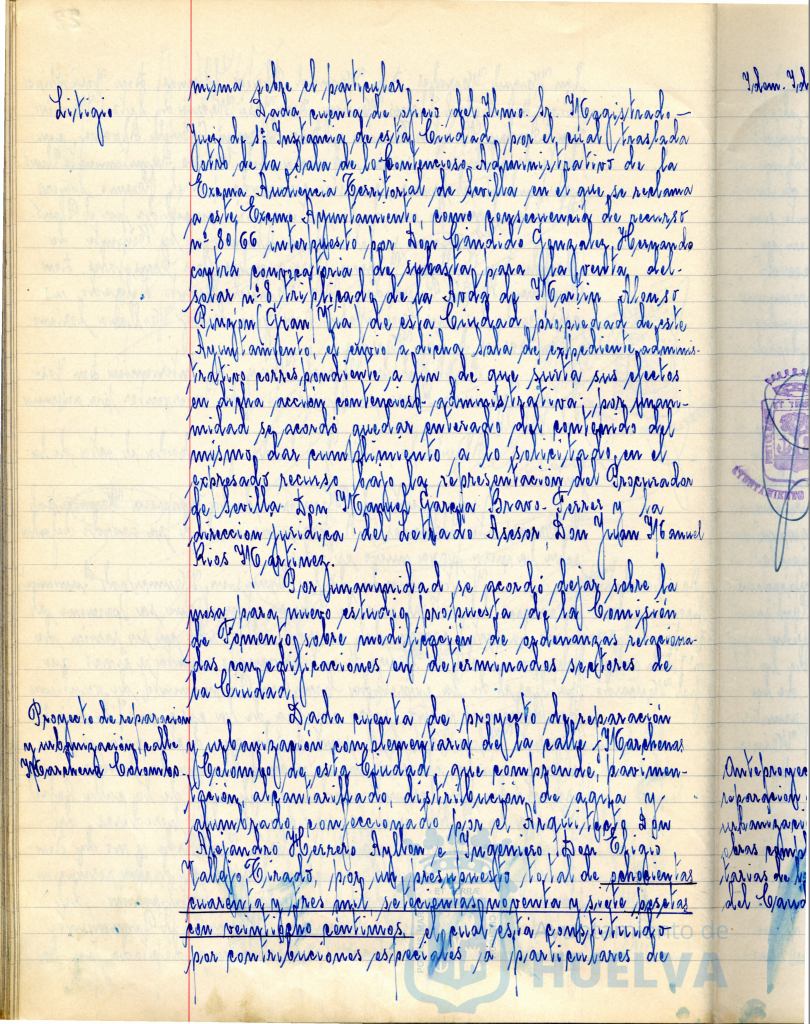 misma sobre el particular.
Litigio
Dada cuenta de oficio del Ilmo. Sr. Magistrado-
Juez de 1ª Instancia de esta Ciudad, por el cual traslada
otro de la Sala de lo Contencioso-Administrativo de la
Excma. Audiencia Territorial de Sevilla en el que se reclama
a este Excmo. Ayuntamiento, como consecuencia de recurso
nº 80/66 interpuesto por Don Cándido Gonzalez Hernando
contra convocatoria de subasta para la venta del
solar nº 8 triplicado de la Avda de Martin Alonso
Pinzón (Gran Via) de esta Ciudad, propiedad de este
Ayuntamiento, el envio a dicha Sala de expediente adminis-
trativo correspondiente a fin de que surta sus efectos
en dicha acción contencioso-administrativa; por unani-
midad se acordó quedar enterado del contenido del
mismo, dar cumplimiento a lo solicitado, en el
expresado recurso bajo la representación del Procurador
de Sevilla Don Manuel Garcia Bravo-Ferrer y la
dirección juridica del Letrado Asesor Don Juan Manuel
Rios Martinez.
Por unanimidad se acordó dejar sobre la
mesa para nuevo estudio, propuesta de la Comisión
de Fomento sobre modificación de ordenanzas relaciona-
das con edificaciones en determinados sectores de
la Ciudad.
Proyecto de reparación
y urbanización, calle
Marchena Colombo.
Dada cuenta de proyecto de reparación
y urbanización complementaria de la calle Marchena
Colombo de esta Ciudad, que comprende, pavimen-
tación, alcantarillado, distribución de agua y
alumbrado, confeccionado por el Arquitecto Don
Alejandro Herrero Ayllon e Ingeniero Don Eligio
Vallejo Tirado, por un presupuesto total de
cuarenta y tres mil setecientas noventa y siete pesetas
con veintiocho céntimos, el cual está constituido
por contribuciones especiales a particulares de
Idem. Id
Anteproyec
reparación
urbanizaci
obras comp
tarias de
del Cand
HUELVA